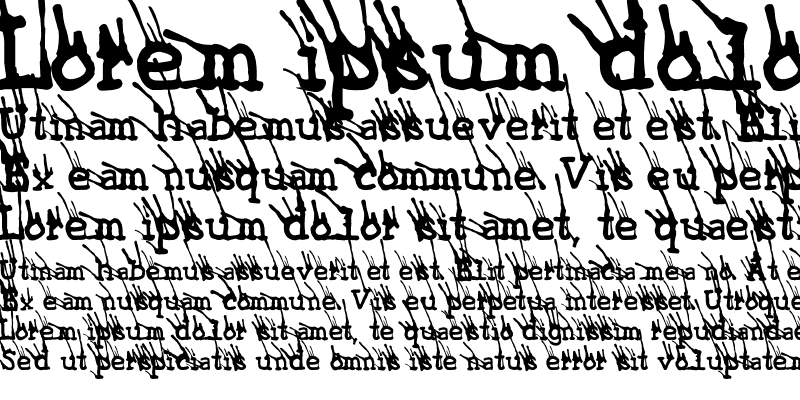 Lorem ipsum dolo
Utinam habemus assueverit et est. Eli
Ex eam nusquam commune. Vis eu perp
Lorem ipsum dolor sit amet, te quaest
Utinam habemus assueverit et est. Elit pertinacia mea no. At e
Ex eam nusquam commune. Vis eu perpetua interesset. Utroque
Lorem ipsum dolor sit amet, te quaestio dignissim repudiandae
Sed ut perspiciatis unde omnis iste natus error sit voluptatem